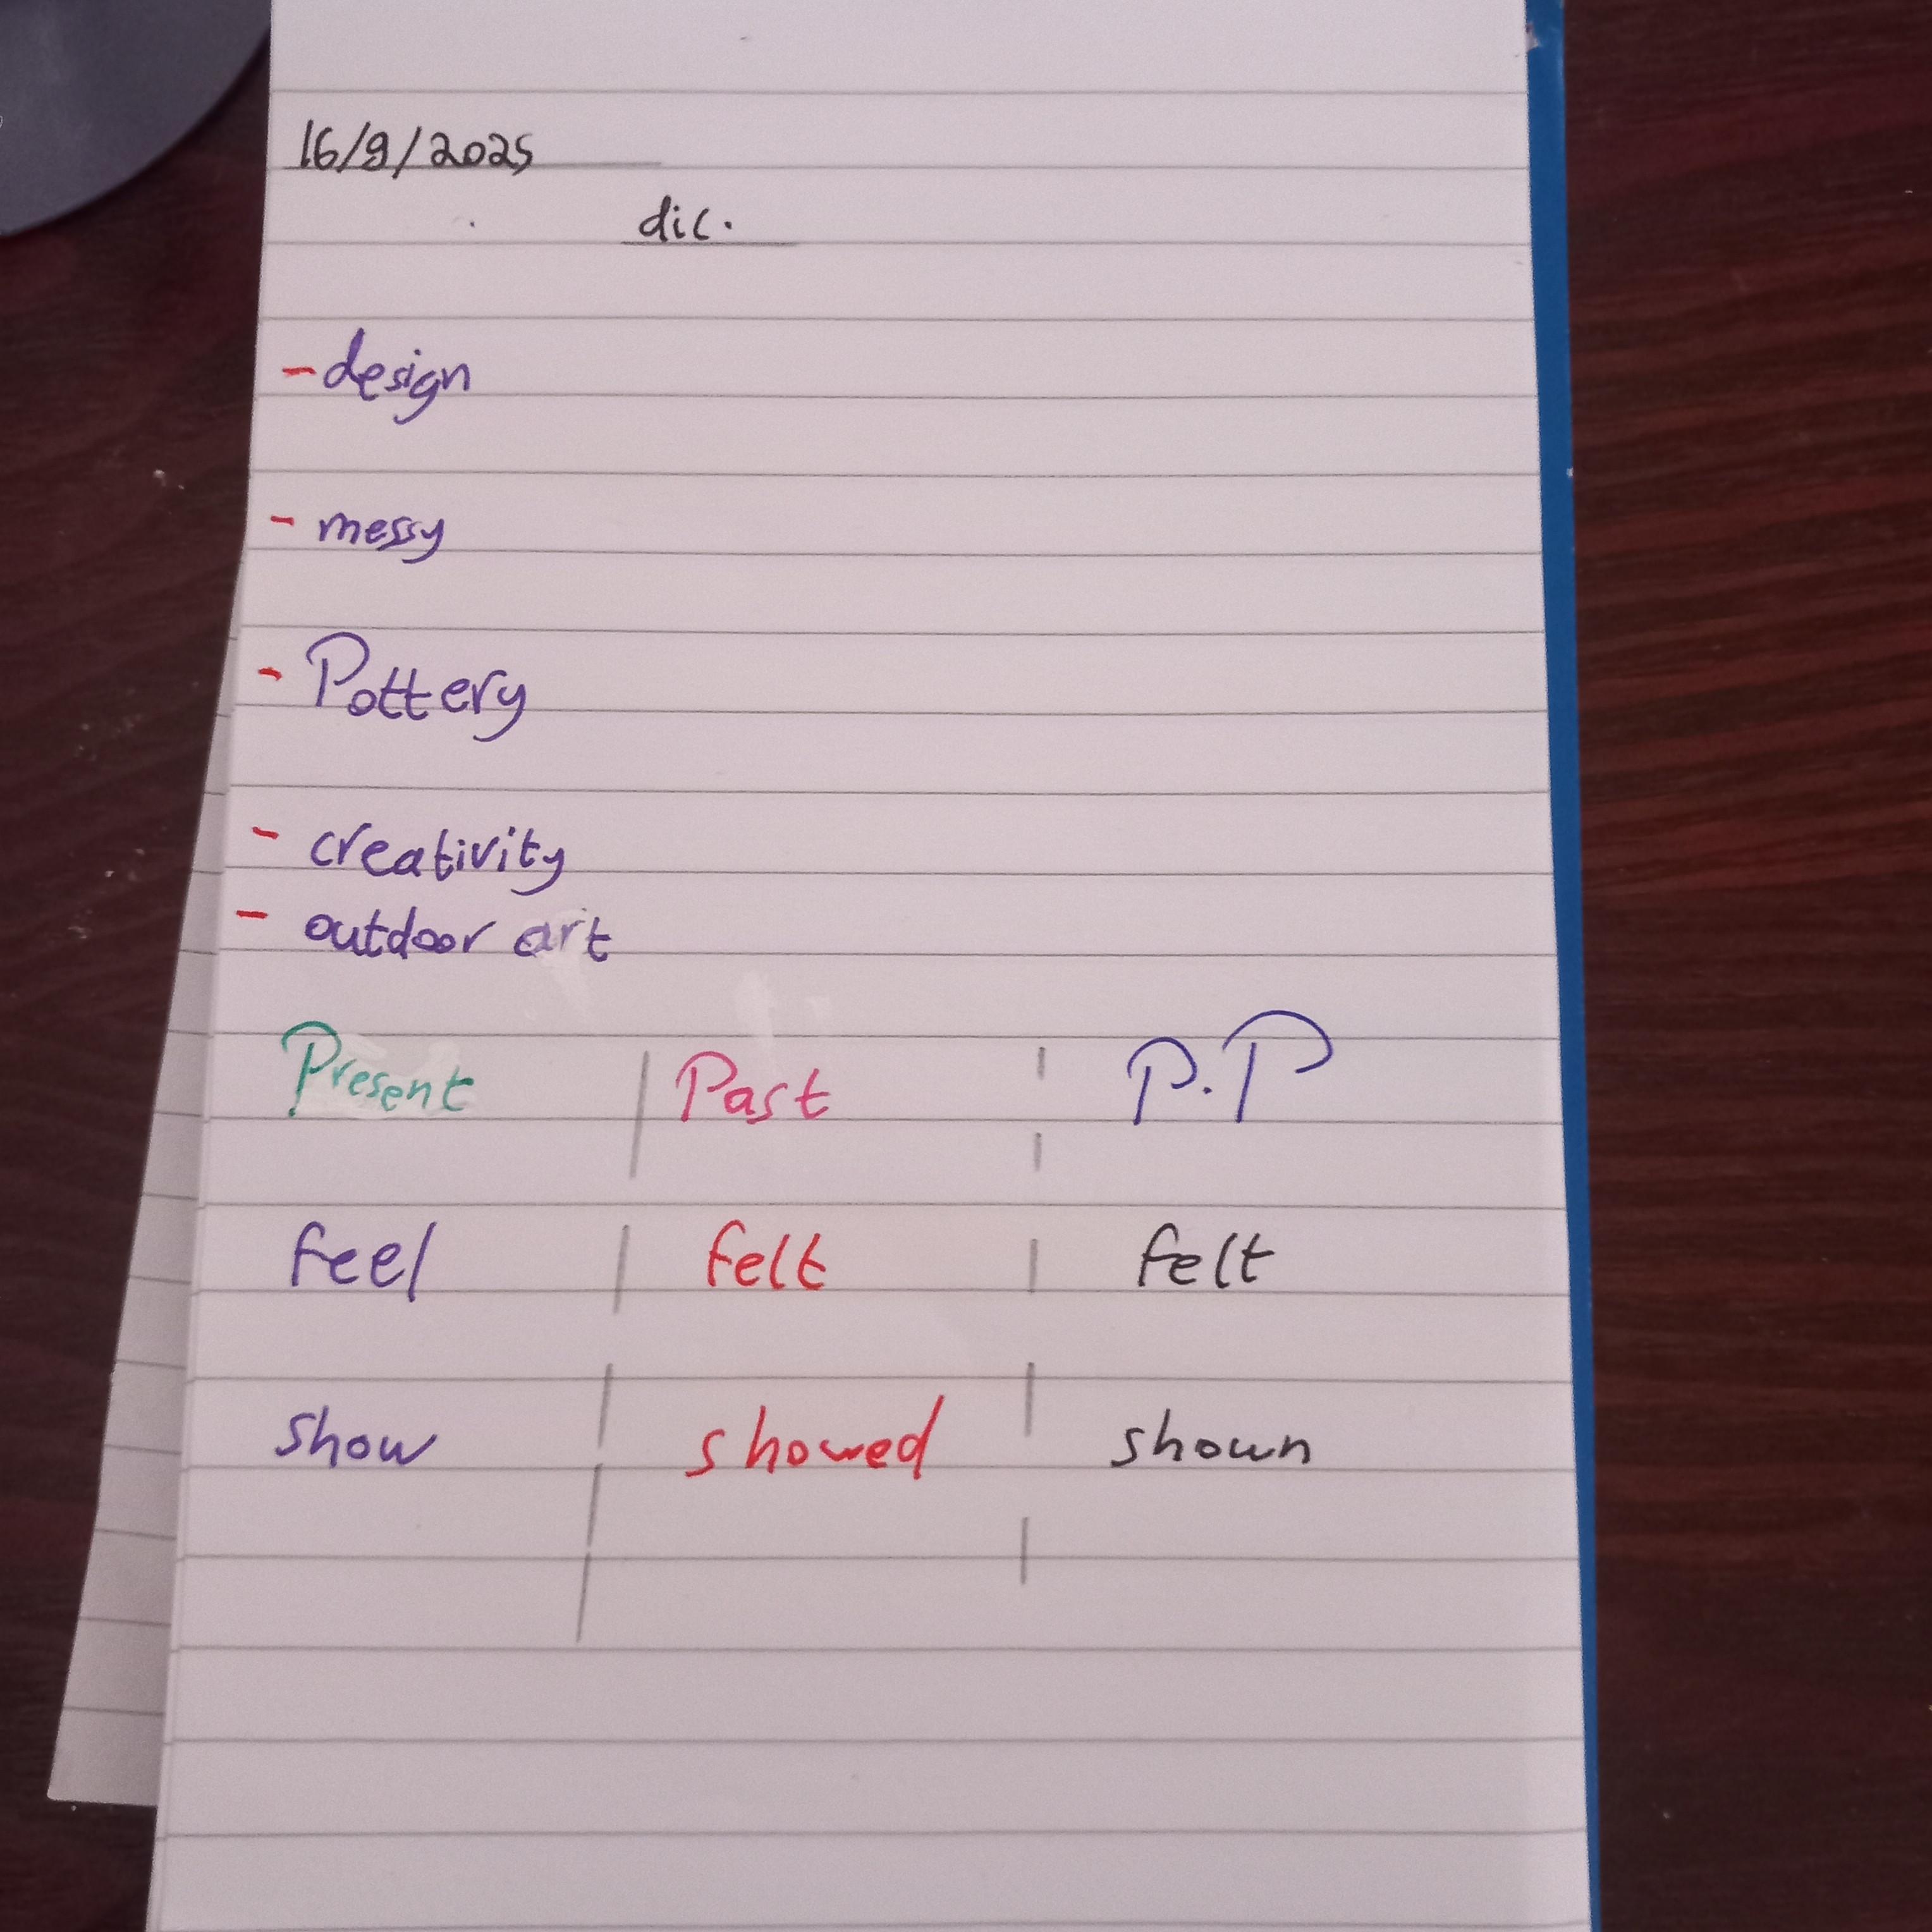 16/9/2025
dic.
- design
- messy
- Pottery
- creativity
- outdoor art
Present | Past | P.P
feel | felt | felt
show | showed | shown